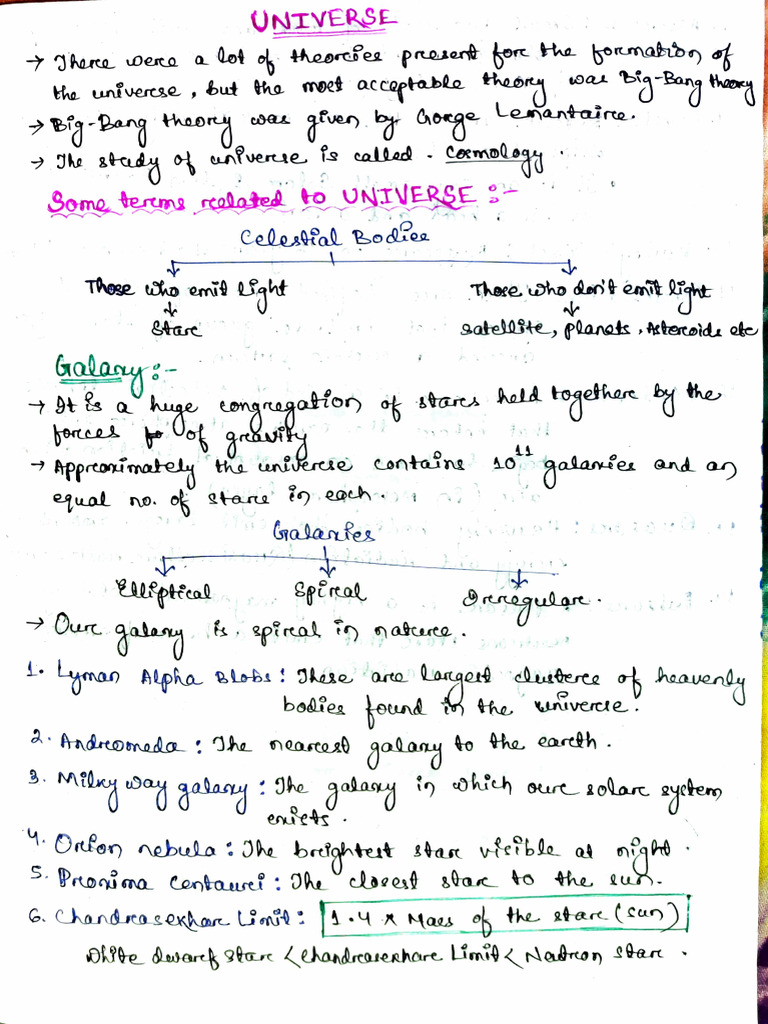 UNIVERSE
→ There were a lot of theories present for the formation of
the universe, but the most acceptable theory was Big-Bang theory
→ Big-Bang theory was given by Gorge Lemantaire.
→ The study of universe is called. Cosmology.
Some terms related to UNIVERSE :-
Celestial Bodies
Those who emit light Those who don't emit light
Star satellite, planets, Asteroids etc
Galaxy :-
→ It is a huge congregation of stars held together by the
forces of gravity
→ Approximately the universe contains 10¹¹ galaxies and an
equal no. of stars in each.
Galaxies
Elliptical Spiral Irregular.
→ Our galaxy is spiral in nature.
1. Lyman Alpha Blobs : These are largest clusters of heavenly
bodies found in the universe.
2. Andromeda : The nearest galaxy to the earth.
3. Milky way galaxy : The galaxy in which our solar system
exists.
4. Orion nebula : The brightest star visible at night.
5. Proxima Centauri : The closest star to the sun.
6. Chandrasekhar Limit : 1.4 × Mass of the star (sun)
White dwarf star < Chandrasekhar Limit < Nutron star.